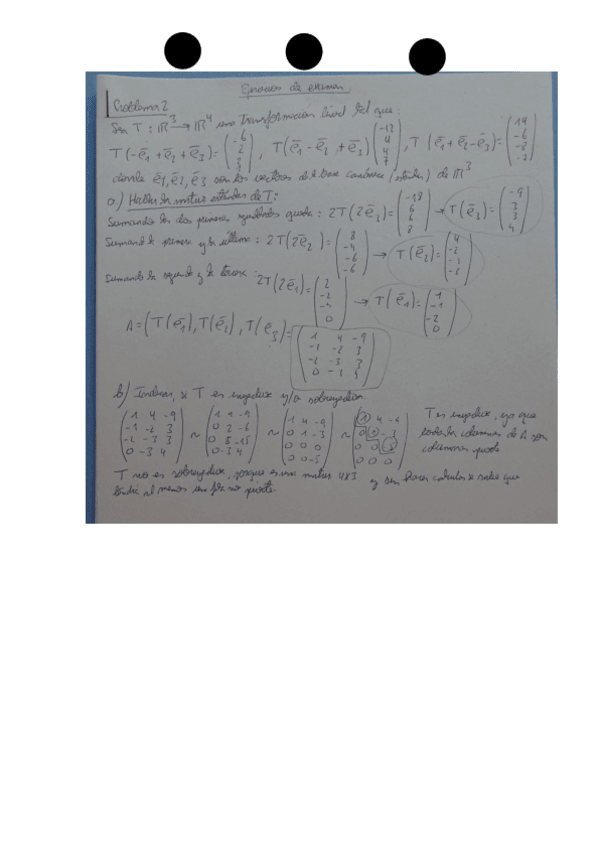 Ejercicios de examen
Problema 2
Sea T: ℝ³ → ℝ⁴ una transformación lineal tal que:
T(-ē1 + ē2 + ē3) = (-6 2 2 3), T(ē1 - ē2 + ē3) (-12 4 4 7), T(ē1 + ē2 - ē3) = (14 -6 -8 -7)
donde ē1, ē2, ē3 son los vectores de la base canónica (estándar) de ℝ³
a) Hallar la matriz estándar de T:
Sumando las dos primeras igualdades queda: 2T(2ē3) = (-18 6 6 8) → T(ē3) = (-9 3 3 4)
Sumando la primera y la última: 2T(2ē2) = (8 -4 -6 -6) → T(ē2) = (4 -2 -3 -3)
Sumando la segunda y la tercera: 2T(2ē1) = (2 -2 -4 0) → T(ē1) = (1 -1 -2 0)
A = (T(ē1), T(ē2), T(ē3)) = (1 4 -9 / -1 -2 3 / -2 -3 3 / 0 -3 4)
b) Indicar, si T es inyectiva y/o sobreyectiva.
(1 4 -9 / -1 -2 3 / -2 -3 3 / 0 -3 4) ~ (1 4 -9 / 0 2 -6 / 0 5 -15 / 0 -3 4) ~ (1 4 -9 / 0 1 -3 / 0 0 0 / 0 0 -5) ~ (1 4 -9 / 0 1 -3 / 0 0 -5 / 0 0 0) T es inyectiva, ya que
todas las columnas de A son
columnas pivote
T no es sobreyectiva, porque es una matriz 4x3 y sin hacer cálculos se sabe que
tendrá al menos una fila no pivote.